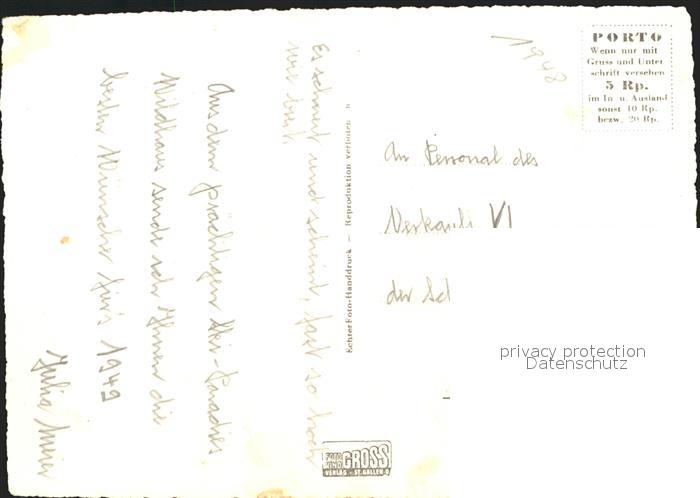 Es schneit und scheint, fast so hoch
wie breit.
Aus dem prächtigen Ski-Paradies
Wildhaus sende ich Ihnen die
besten Wünsche für's 1949
Julia Meier
Echter Foto-Handdruck – Reproduktion verboten
1948
PORTO
Wenn nur mit
Gruss und Unter
schrift versehen
5 Rp.
im In u. Ausland
sonst 10 Rp.
bezw. 20 Rp.
An Personal des
VI
der
privacy protection
Datenschutz
FOTO
GROSS
VERLAG - ST. GALLEN